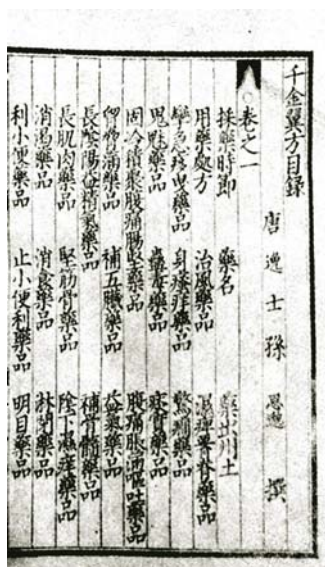 千金翼方目錄
唐逸士孫思邈撰
卷之一
採藥時節 藥名 藥出州土
用藥處方 治風藥品 濕痺腰脊藥品
攣急䠥曳藥品 身瘙痒藥品 驚癇藥品
鬼魅藥品 蠱毒藥品 痰實藥品
固冷積聚腹痛腸堅藥品 腹痛脹滿嘔吐藥品
胸脅滿藥品 補五臟藥品 益氣藥品
長陰陽益精氣藥品 補骨髓藥品
長肌肉藥品 堅筋骨藥品 陰下濕痒藥品
消渴藥品 消食藥品 淋閉藥品
利小便藥品 止小便利藥品 明目藥品